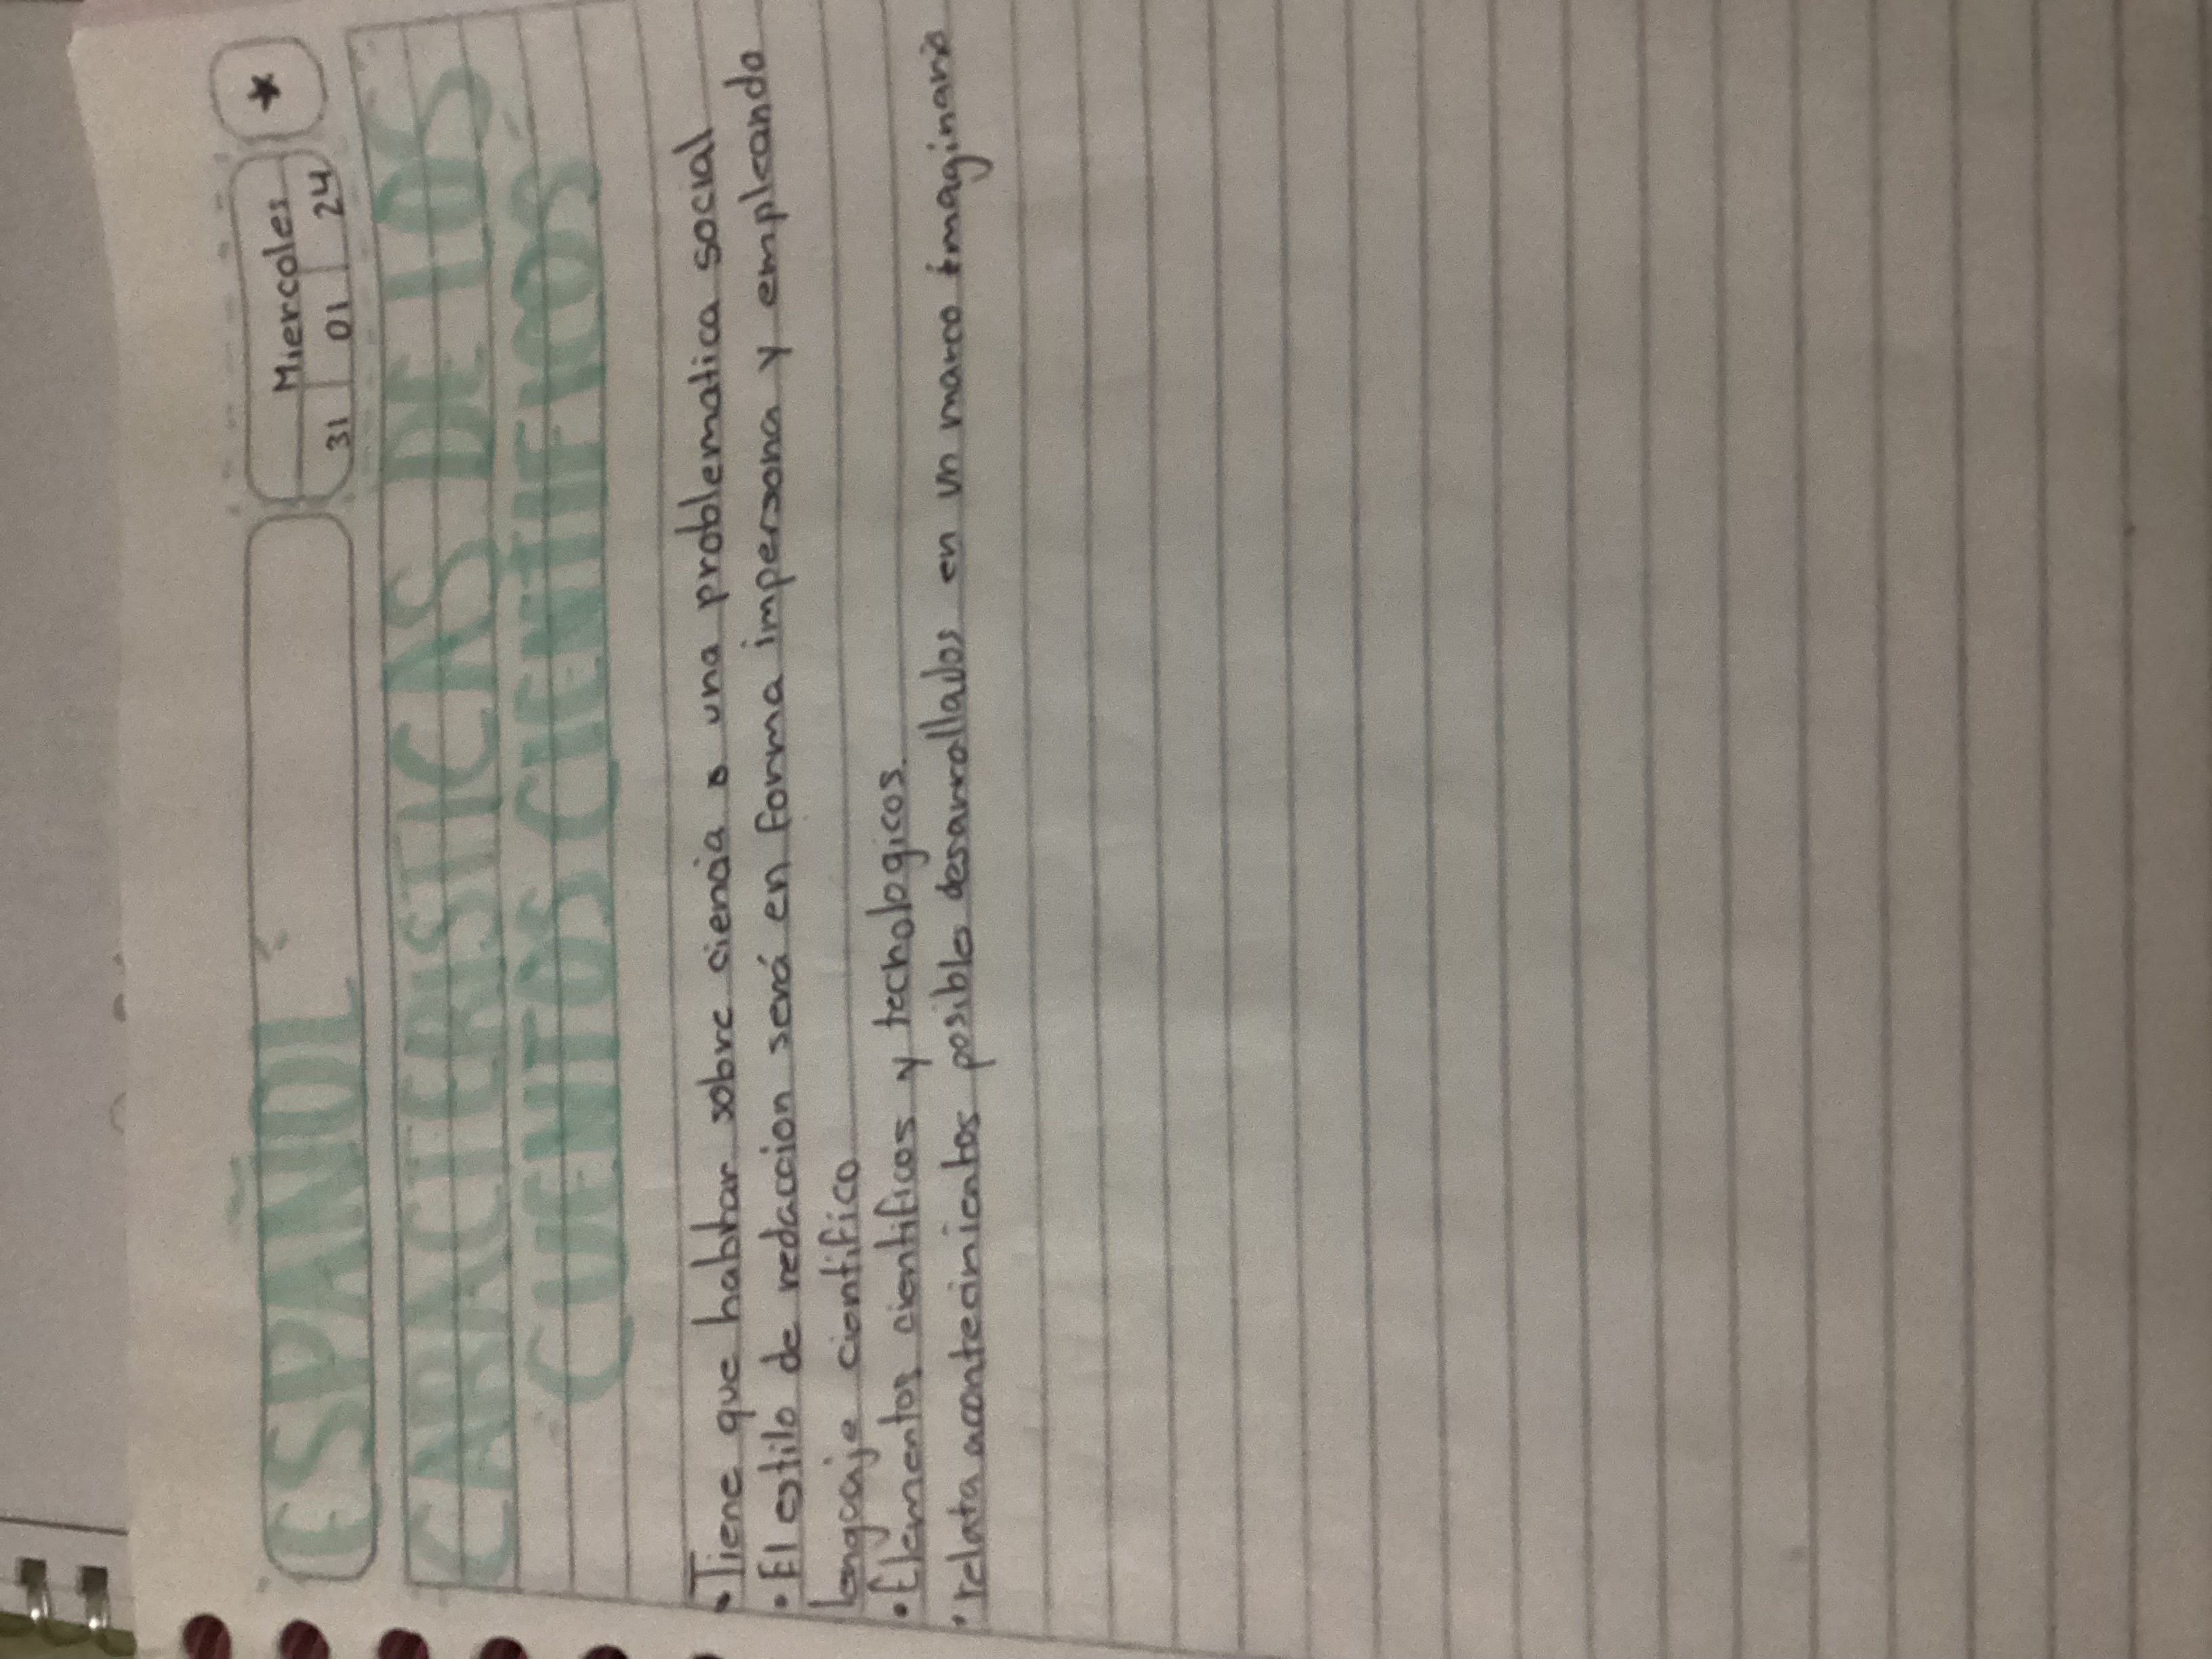 ESPAÑOL
Miercoles
31 01 24
CARACTERISTICAS DE LOS
CUENTOS CIENTIFICOS
• Tiene que hablar sobre ciencia o una problematica social
• El estilo de redaccion será en forma impersona y empleando
lenguaje cientifico
• Elementos cientificos y techologicos.
• relata acontrecimientos posibles desarrollados en un marco imaginario